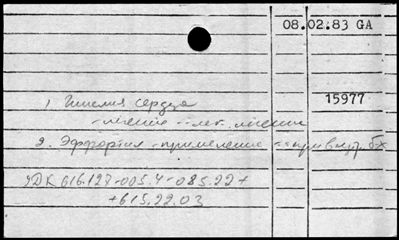 08.02.83 GA
15977
1. Ишемия сердца
- лечение - лек. лечение
2. Эффортил - применение - при
УДК 616.127-005.4-085.22+
+615.22.03